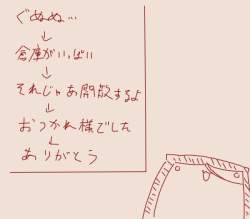 ぐぬぬ…
↓
倉庫がいっぱい
↓
それじゃあ開散するよ
↓
おつかれ様でした
↓
ありがとう